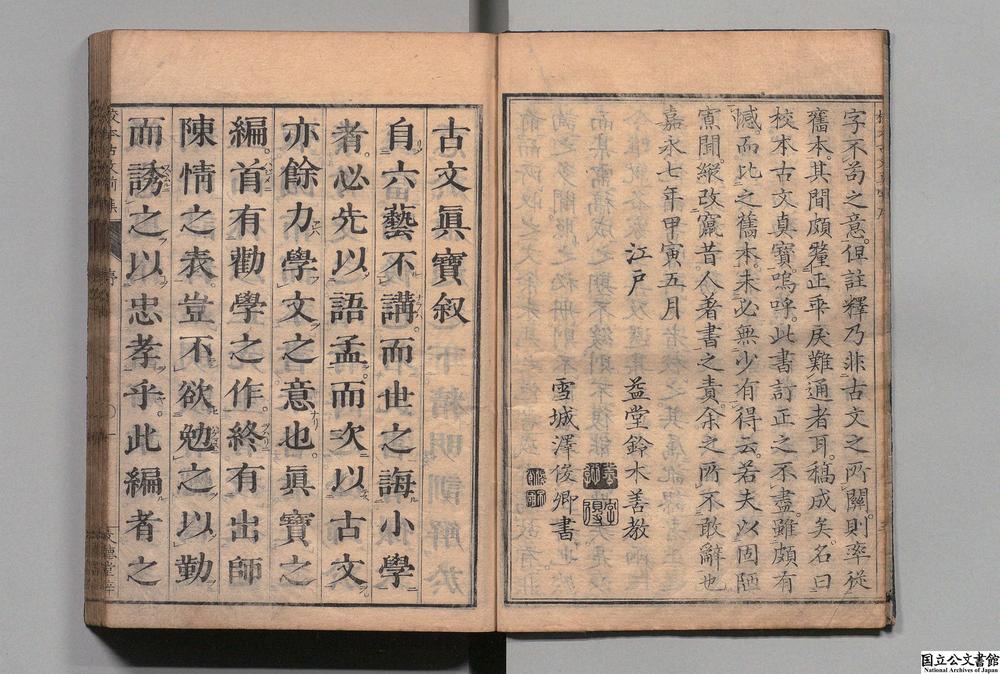 字不苟之意。但註釋乃非古文之所關。則率從
舊本。其間頗釐正乖戾難通者耳。稿成矣。名曰
校本古文真寶。嗚呼。此書訂正之不盡。雖頗有
憾。而比之舊本。未必無少有得云。若夫以固陋
寡聞。縱改竄昔人著書之責。余之所不敢辭也
嘉永七年甲寅五月
江戸 益堂鈴木善教
雪城澤俊卿書
古文眞寶叙
自六藝不講。而世之誨小學
者。必先以語孟。而次以古文。
亦餘力學文之意也。眞寶之
編。首有勸學之作。終有出師
陳情之表。豈不欲勉之以勤
而誘之以忠孝乎。此編者之
国立公文書館
National Archives of Japan